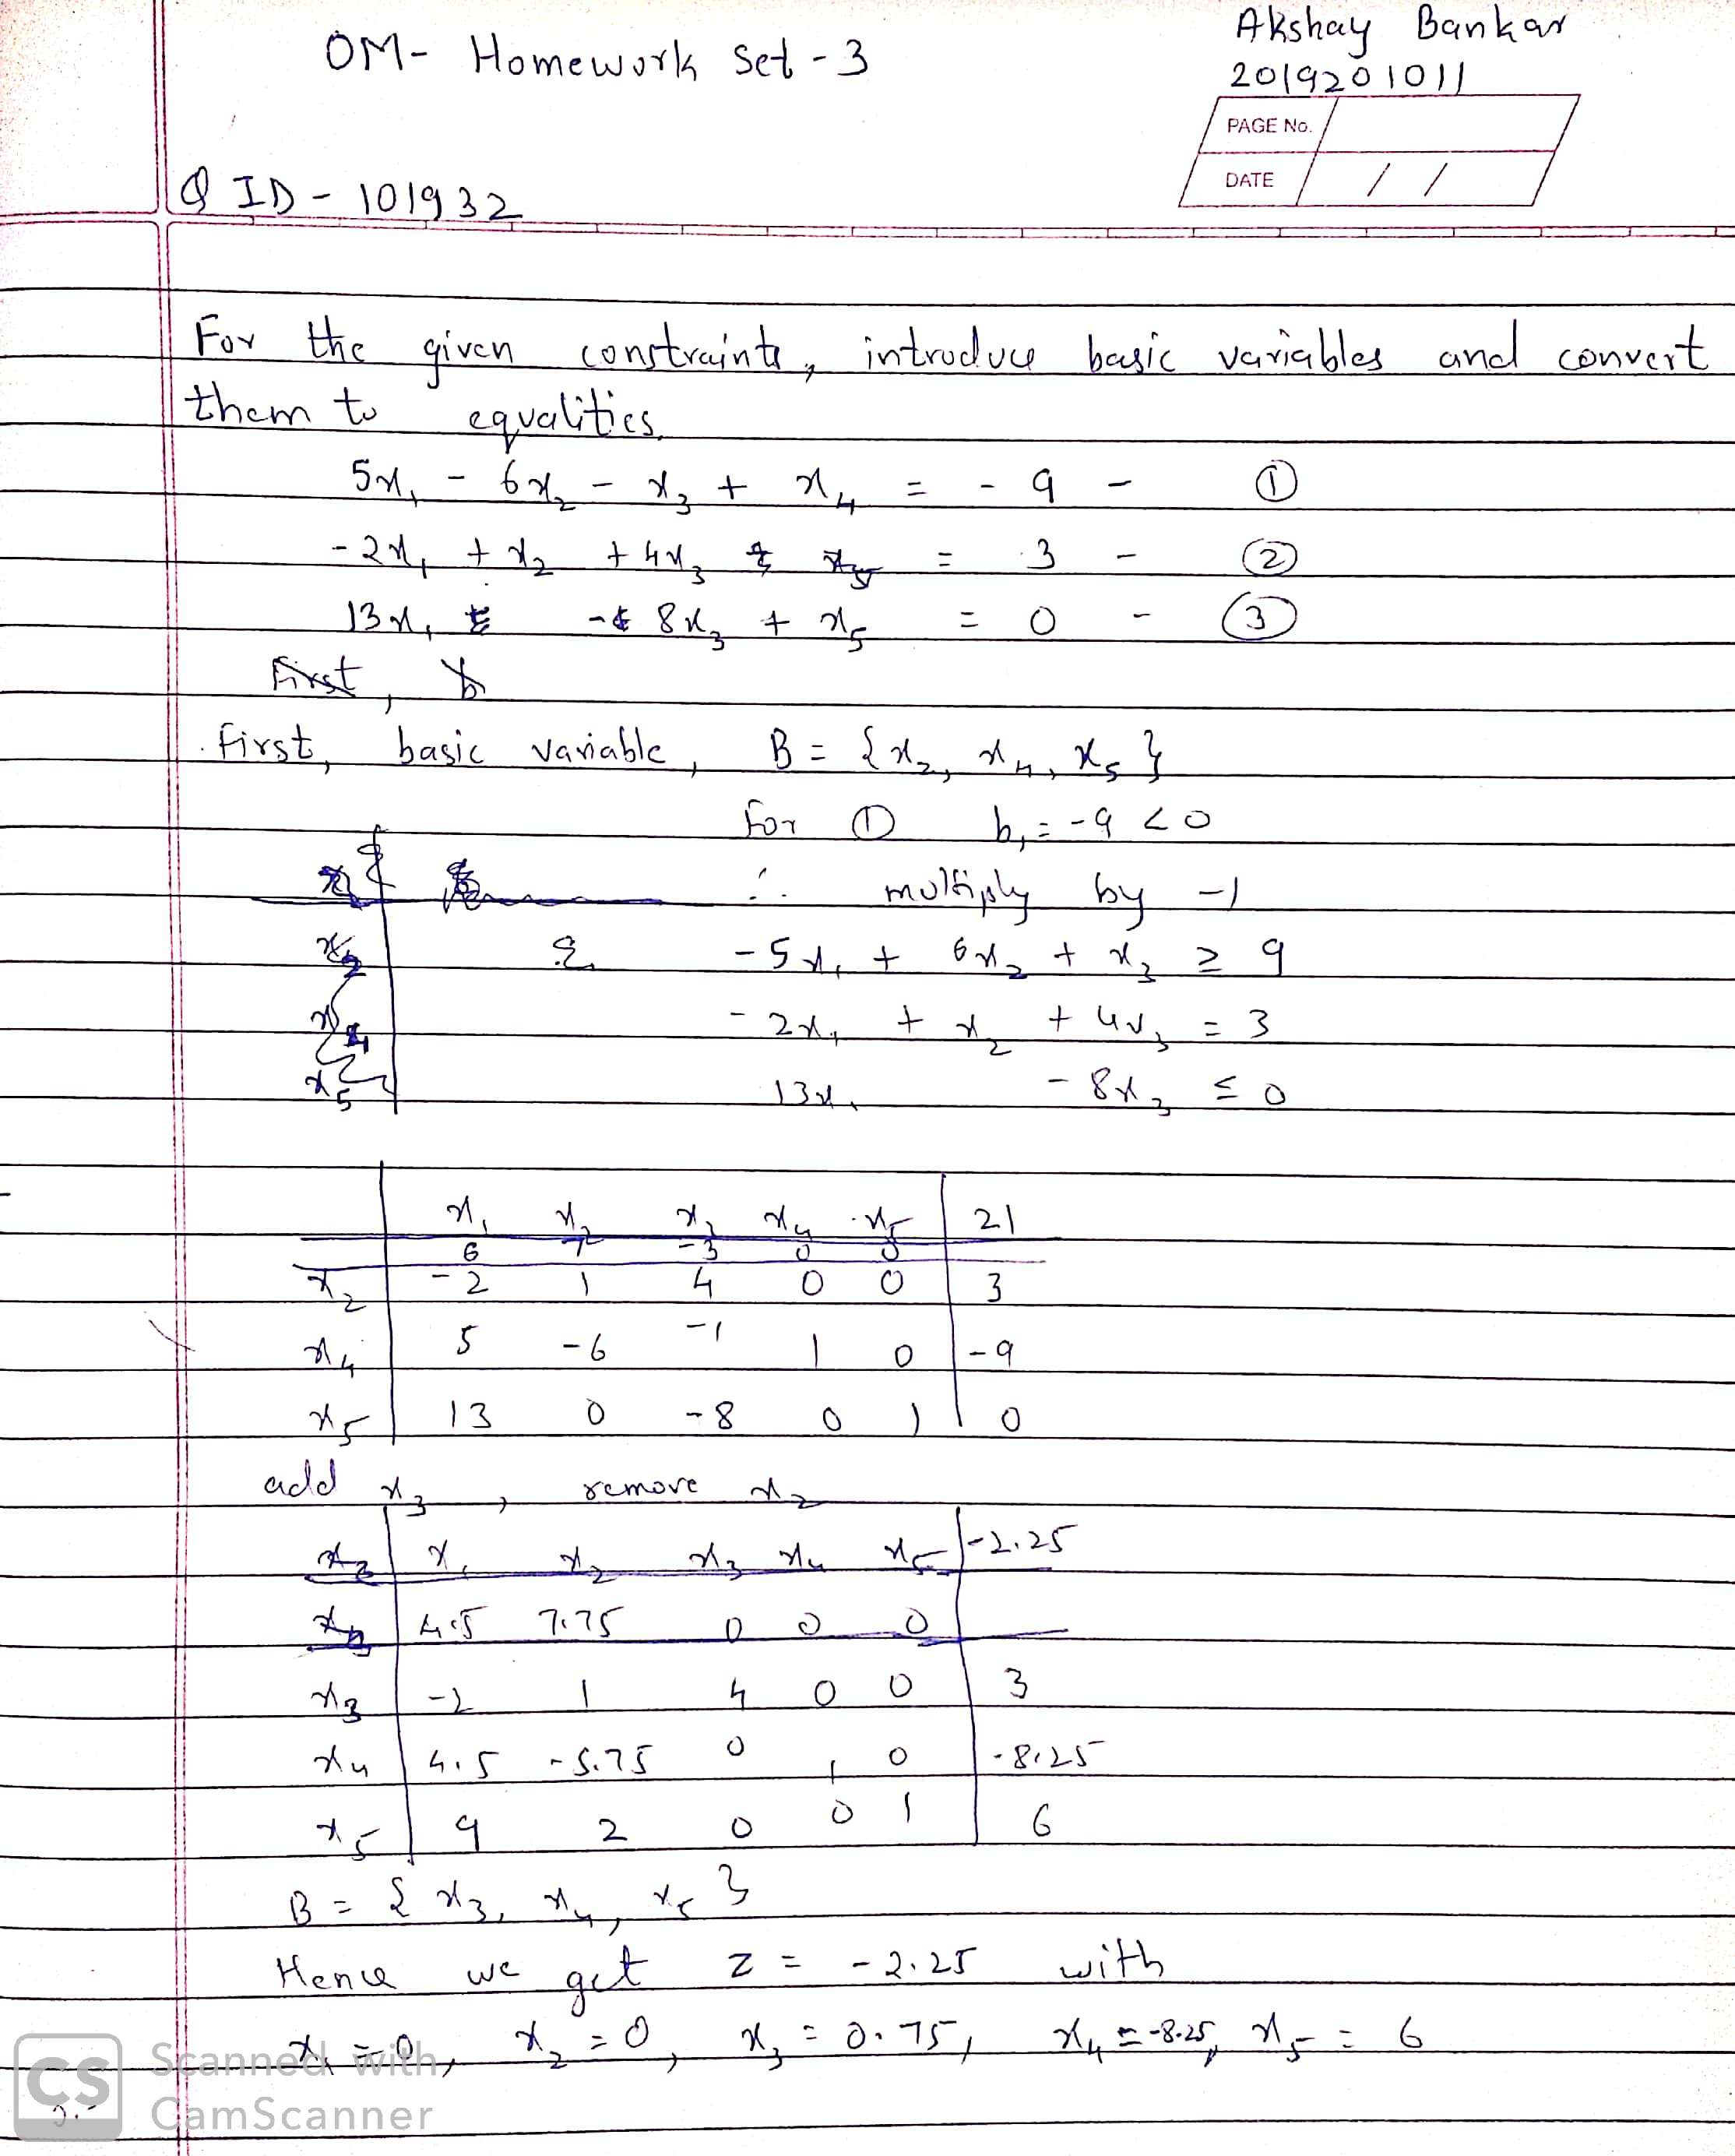 OM- Homework Set-3
Akshay Bankar
2019201011
PAGE No.
DATE / /
Q ID - 101932
For the given constraints, introduce basic variables and convert
them to equalities.
5x₁ - 6x₂ - x₃ + x₄ = -9 - ①
-2x₁ + x₂ + 4x₃ = 3 - ②
13x₁ - 8x₃ + x₅ = 0 - ③
First,
First, basic variable, B = {x₂, x₄, x₅}
For ① b₁ = -9 < 0
∴ multiply by -1
-5x₁ + 6x₂ + x₃ ≥ 9
-2x₁ + x₂ + 4x₃ = 3
13x₁ - 8x₃ ≤ 0
x₁ x₂ x₃ x₄ x₅ 21
6 7 -3 0 0
x₂ -2 1 4 0 0 3
x₄ 5 -6 -1 1 0 -9
x₅ 13 0 -8 0 1 0
add x₃, remove x₂
x₁ x₂ x₃ x₄ x₅ -2.25
4.5 7.75 0 0 0
x₃ -2 1 4 0 0 3
x₄ 4.5 -5.75 0 1 0 -8.25
x₅ 9 2 0 0 1 6
B = {x₃, x₄, x₅}
Hence we get z = -2.25 with
x₁ = 0, x₂ = 0, x₃ = 0.75, x₄ = -8.25, x₅ = 6
CS Scanned with
CamScanner